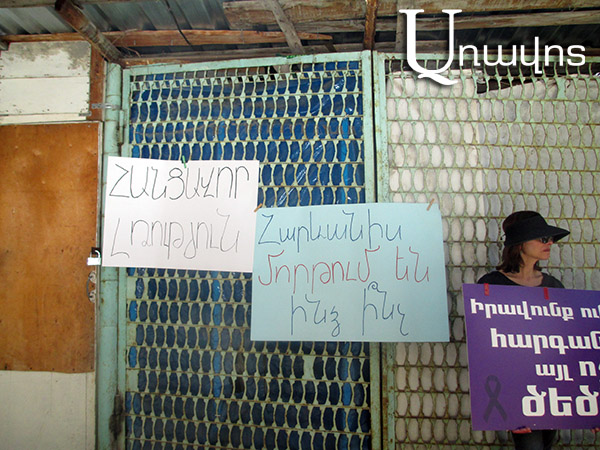 Առավոտ
ՀԱՆՑԱՎՈՐ
Լռություն
Հարևանիս
մորթում են
ինձ ի՞նչ
Իրավունք ու
հարգան
այլ ո
ծեծ